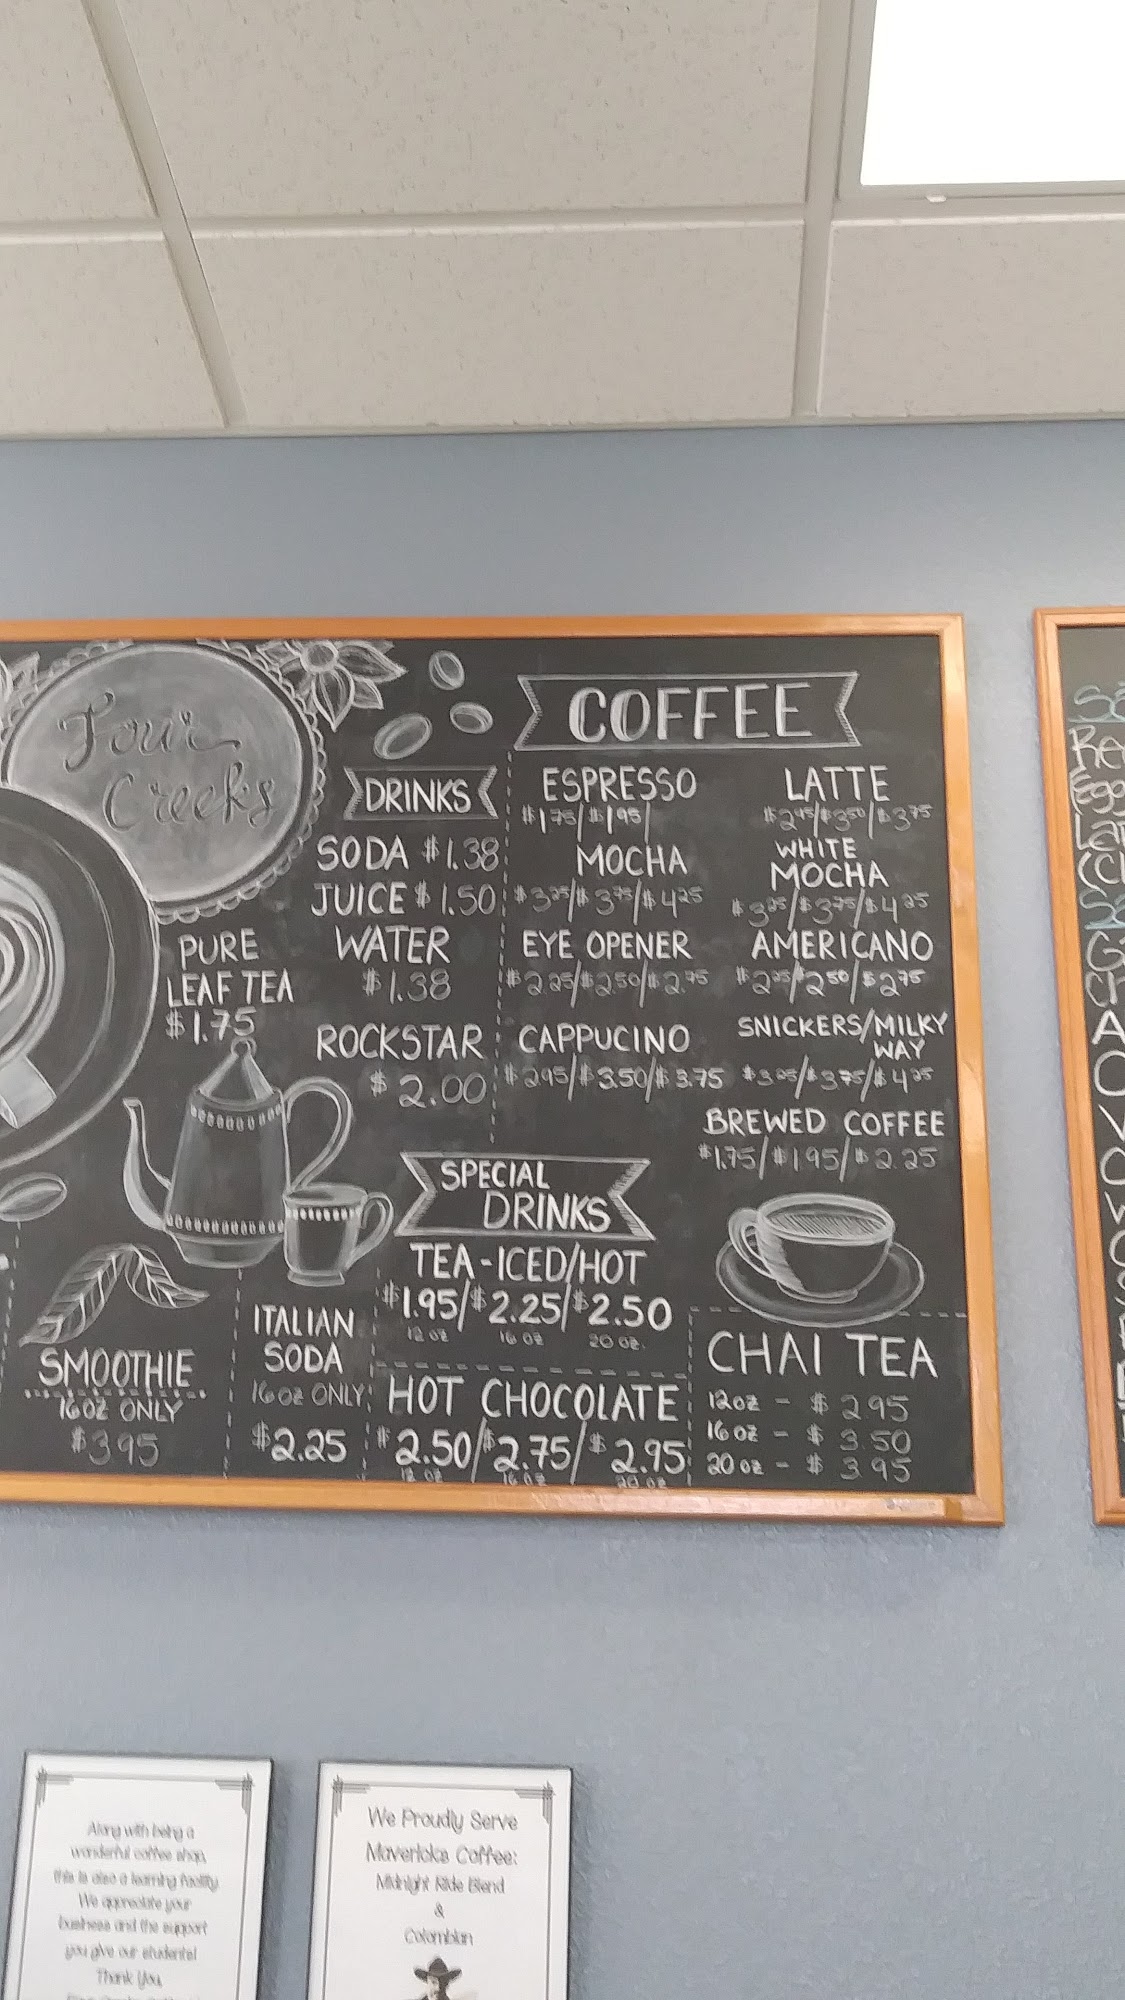 Four
Creeks
DRINKS
SODA $1.38
JUICE $1.50
WATER
$1.38
PURE
LEAF TEA
$1.75
ROCKSTAR
$2.00
COFFEE
ESPRESSO
$1.75/$1.95/
MOCHA
$3.25/$3.75/$4.25
EYE OPENER
$2.25/$2.50/$2.75
CAPPUCINO
$2.95/$3.50/$3.75
LATTE
$2.95/$3.50/$3.75
WHITE
MOCHA
$3.25/$3.75/$4.25
AMERICANO
$2.25/$2.50/$2.75
SNICKERS/MILKY
WAY
$3.25/$3.75/$4.25
BREWED COFFEE
$1.75/$1.95/$2.25
SPECIAL
DRINKS
TEA-ICED/HOT
$1.95/$2.25/$2.50
12 oz 16 oz 20 oz.
SMOOTHIE
16OZ ONLY
$3.95
ITALIAN
SODA
16OZ ONLY
$2.25
HOT CHOCOLATE
$2.50/$2.75/$2.95
12 oz 16 oz 20 oz
CHAI TEA
12oz - $2.95
16oz - $3.50
20oz - $3.95
Along with being a
wonderful coffee shop,
this is also a learning facility.
We appreciate your
business and the support
you give our students!
Thank You,
We Proudly Serve
Mavericks Coffee:
Midnight Ride Blend
&
Colombian